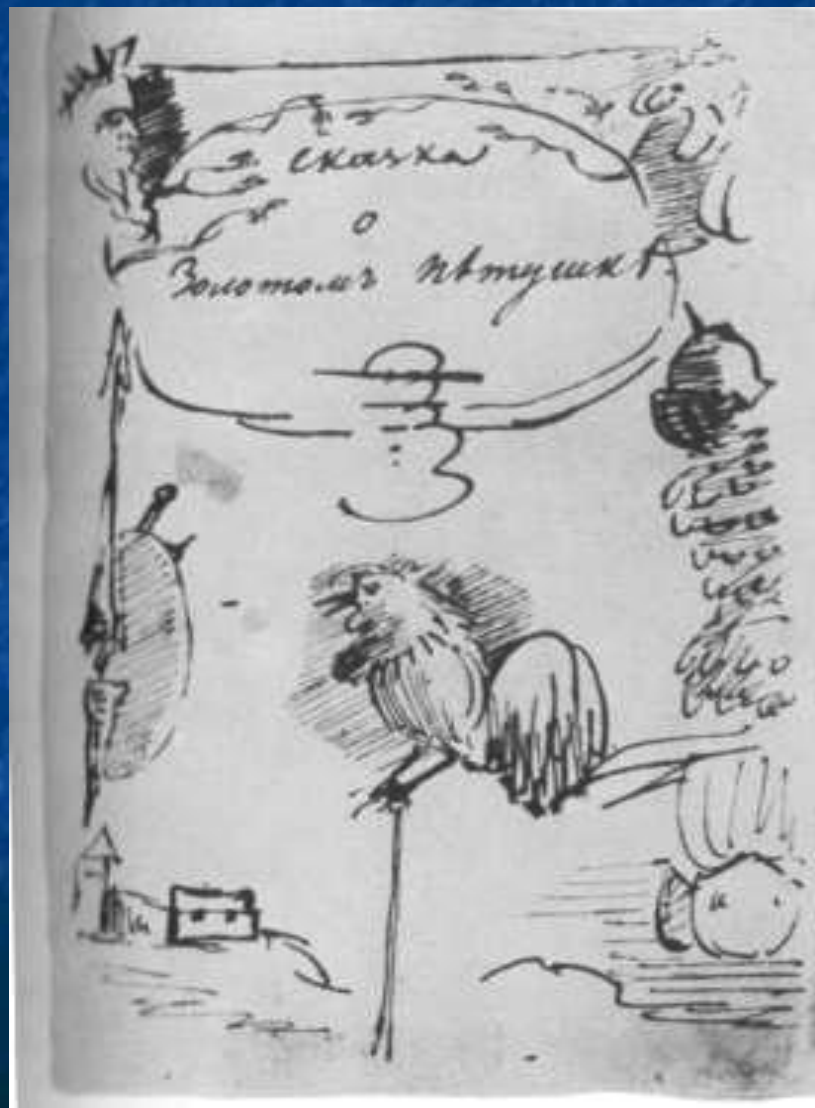 Сказка
о
Золотомъ пѣтушкѣ.